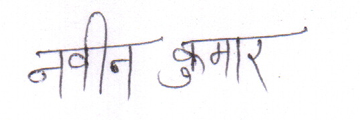 नवीन कुमार